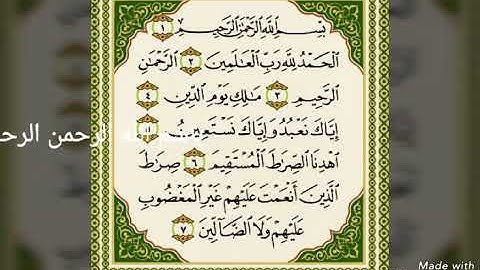 بِسْمِ ٱللَّهِ ٱلرَّحْمَٰنِ ٱلرَّحِيمِ ١
ٱلْحَمْدُ لِلَّهِ رَبِّ ٱلْعَٰلَمِينَ ٢ ٱلرَّحْمَٰنِ
ٱلرَّحِيمِ ٣ مَٰلِكِ يَوْمِ ٱلدِّينِ ٤
إِيَّاكَ نَعْبُدُ وَإِيَّاكَ نَسْتَعِينُ ٥
ٱهْدِنَا ٱلصِّرَٰطَ ٱلْمُسْتَقِيمَ ٦ صِرَٰطَ
ٱلَّذِينَ أَنْعَمْتَ عَلَيْهِمْ غَيْرِ ٱلْمَغْضُوبِ
عَلَيْهِمْ وَلَا ٱلضَّآلِّينَ ٧
الرحمن
Made with